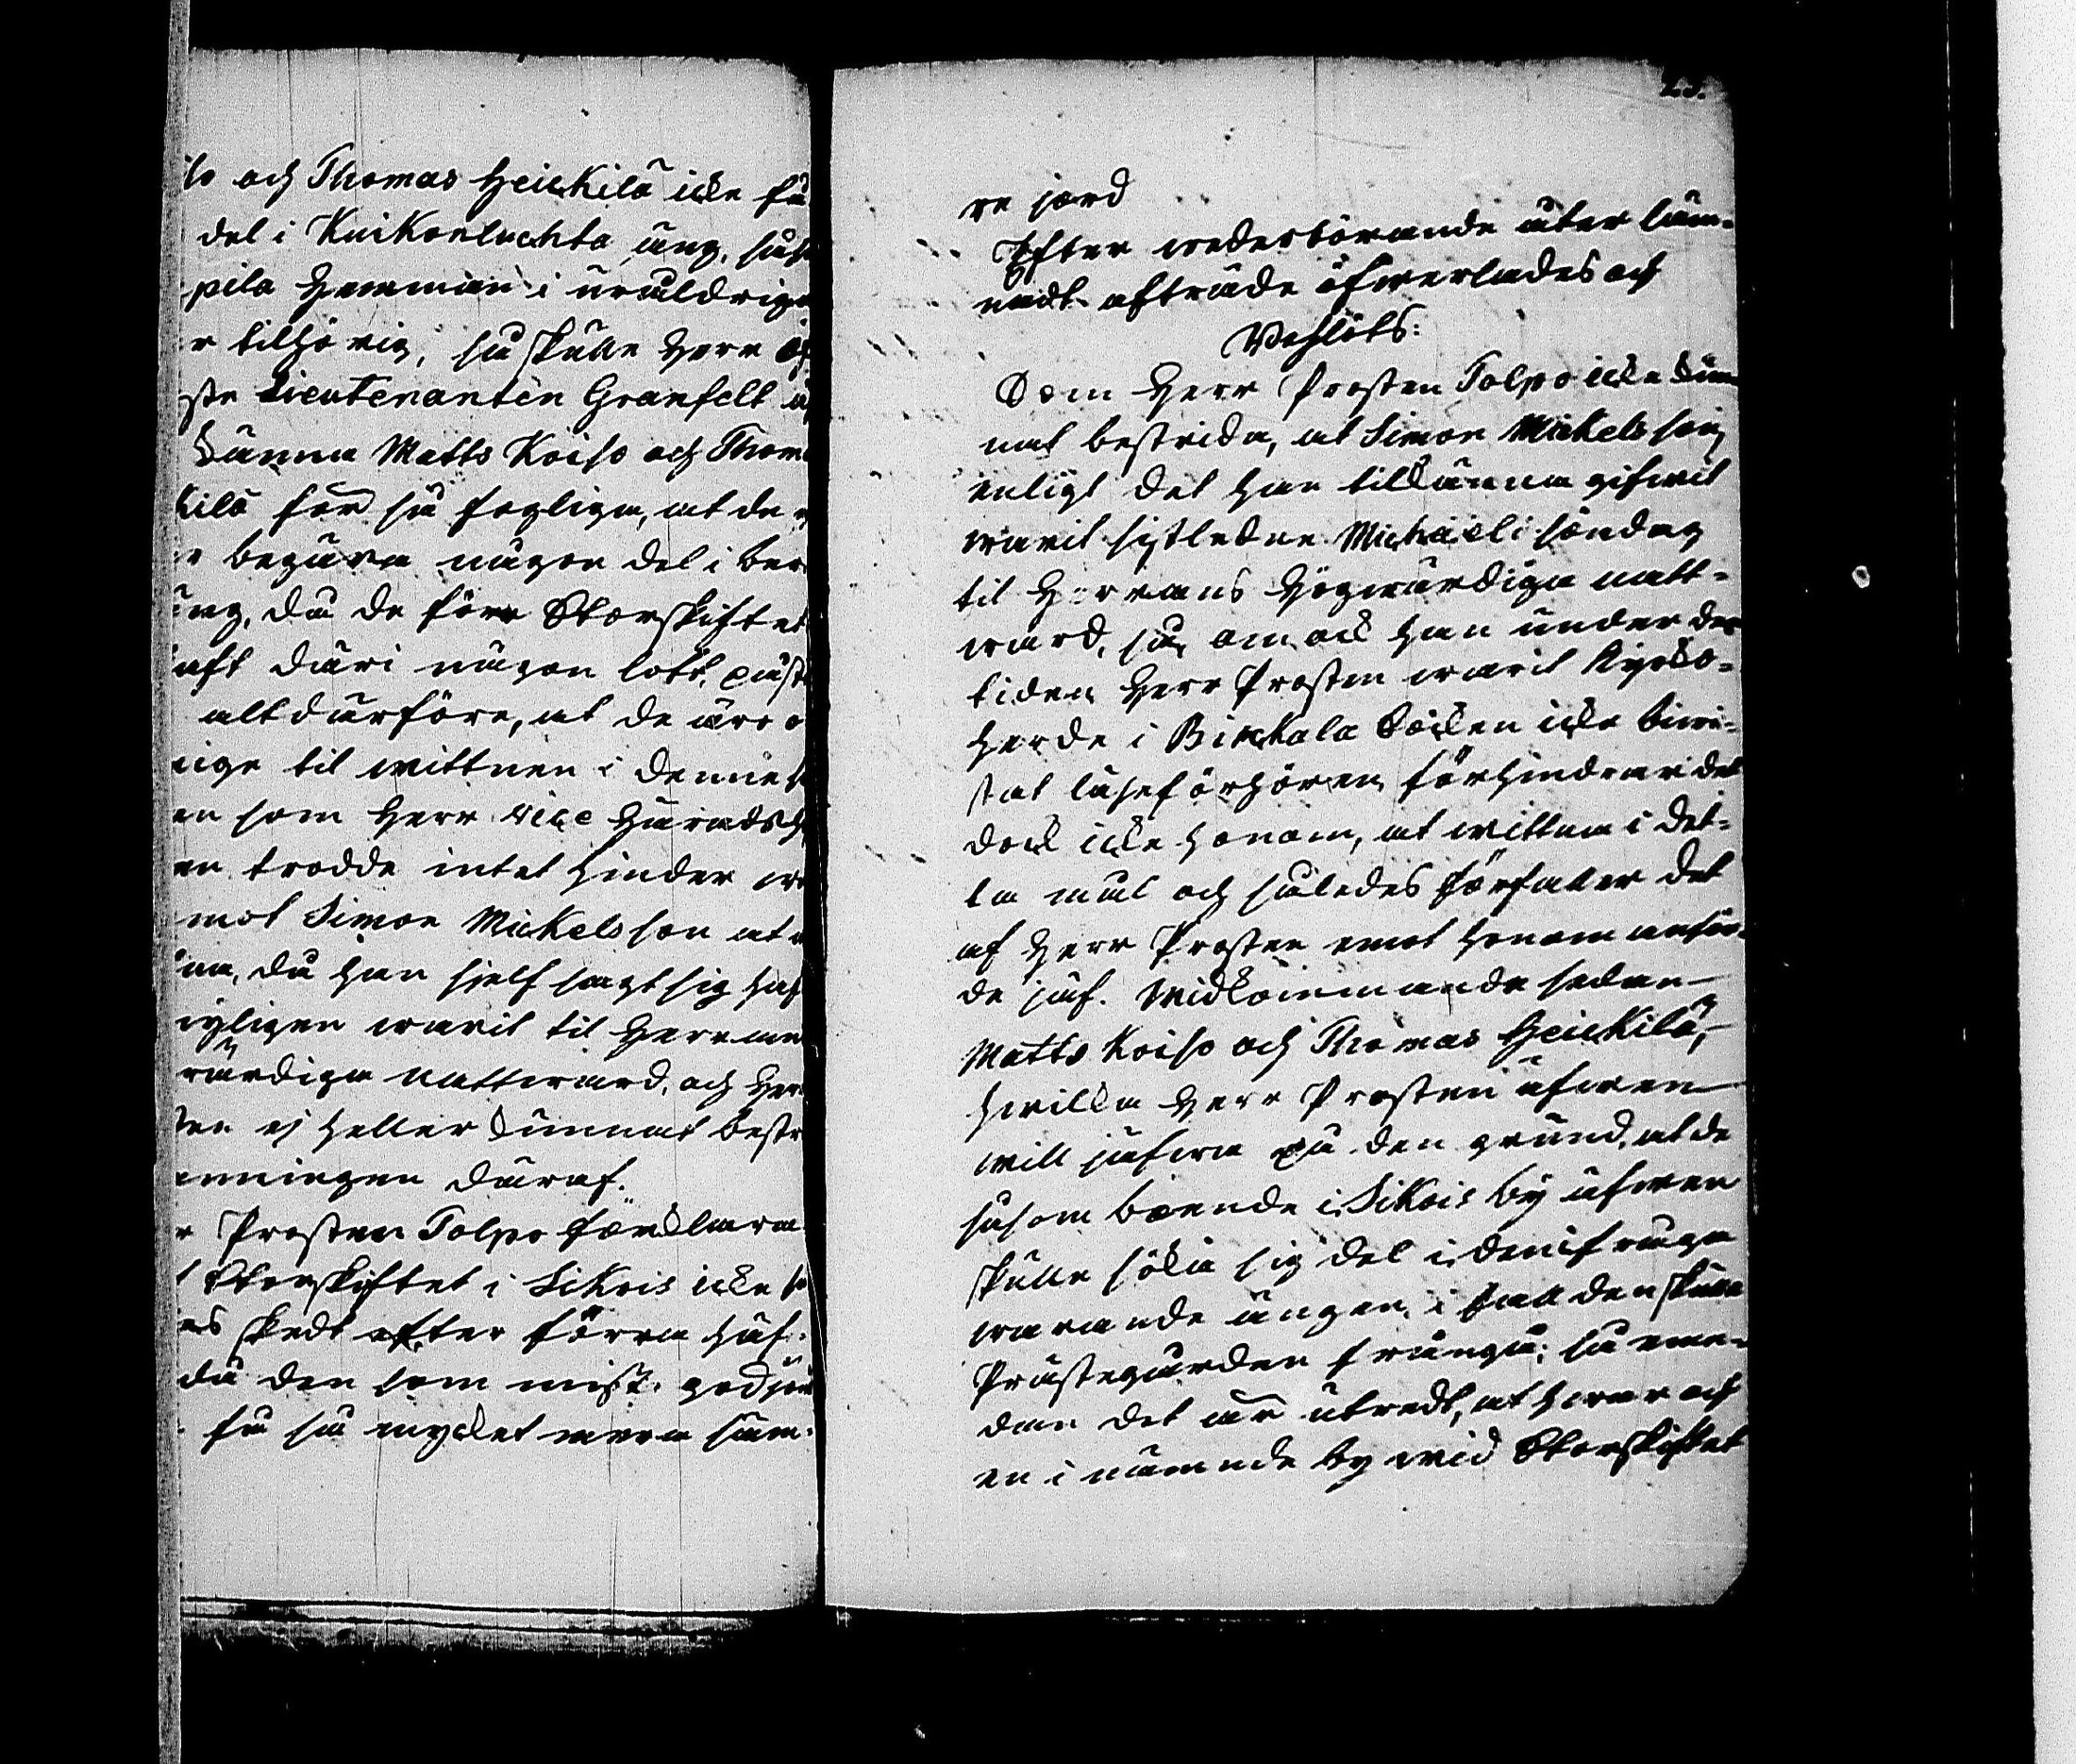 so och Thomas Heickilä icke få
del i Kuikonluchta äng, såso
pila Hemman i uråldriga
r tilhörig, så skulle Herr Öf
ste Lieutenanten Granfelt ä
känna Matts Koiso och Thom
kilä för så foglige, at de e
r begära någon del i ber
äng, då de förr Storskiftet
aft däri någon lott, påst
altdärföre, at de äro o
nige til wittnen i denne s
en som Herr vice Häradsh
en trodde intet hinder wa
mot Simon Mickelsson at w
na, då han sjelf sagt sig haf
nyligen warit til Herrans
wärdiga nattward, och Her
ten ej heller kunnat bestr
anningen däraf.
r Prosten Tolpo förklara
t Storskiftet i Sikois icke så
es skedt efter förra häf-
då den som mist godjor
få så mycket mera säm-
23.
re jord
Efter wederbörande åter läm-
nadt afträde öfwerlades och
Beslöts:
Som Herr Prosten Tolpo icke kun
nat bestrida, at Simon Mickelsson
enligt det han tilkänna gifwit
warit sistledne Michaeli söndag
til Herrans högwärdiga natt-
ward, så, om ock han under den
tiden Herr Prosten warit Kyrko-
herde i Birkkala Socken icke biwi-
stat läseförhören, förhindrar det
dock icke honom, at wittna i det-
ta mål och således förfaller det
af Herr Prosten emot honom anför-
de jäf. Widkommande sedan
Matts Koiso och Thomas Heickilä,
hwilka Herr Prosten äfwen
will jäfwa på den grund, at de
såsom boende i Sikois by äfwen
skulle sökia sig del i den ifråga
warande ängen, i fall den skulle
Prästegården frångå; så eme-
dan det är utredt, at hwar och
en i nämnde by wid Storskiftet